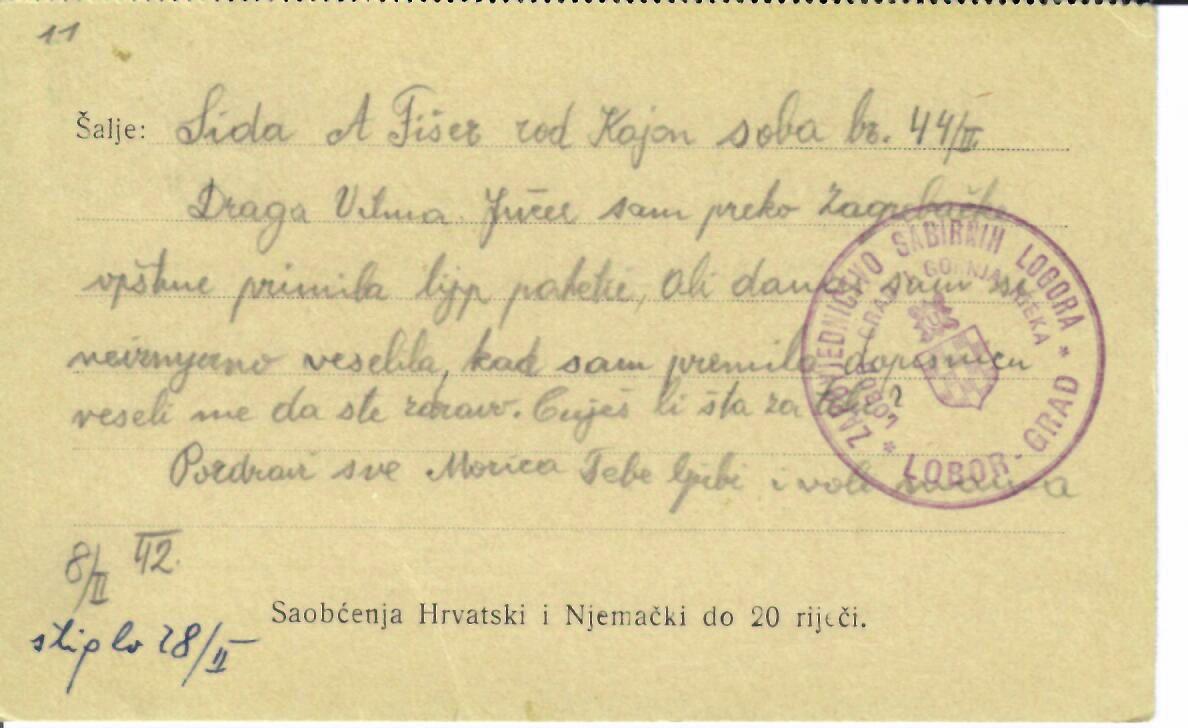 11
Šalje: Sida A Fišer rod Kajon soba br. 44/II
Draga Vilma Jučer sam preko Zagrebačke
opštine primila lijep paketić, Ali danas sam se
neizmjerno veselila, kad sam premila dopisnicu
veseli me da ste zdravo. Čuješ li šta za
Pozdravi sve Morica Tebe ljubi i voli mama
ZAPOVJEDNIČTVO SABIRNIH LOGORA * LOBOR-GRAD *
LOBORGRAD I GORNJA RIJEKA
8/II 42.
stiglo 28/II
Saobćenja Hrvatski i Njemački do 20 riječi.